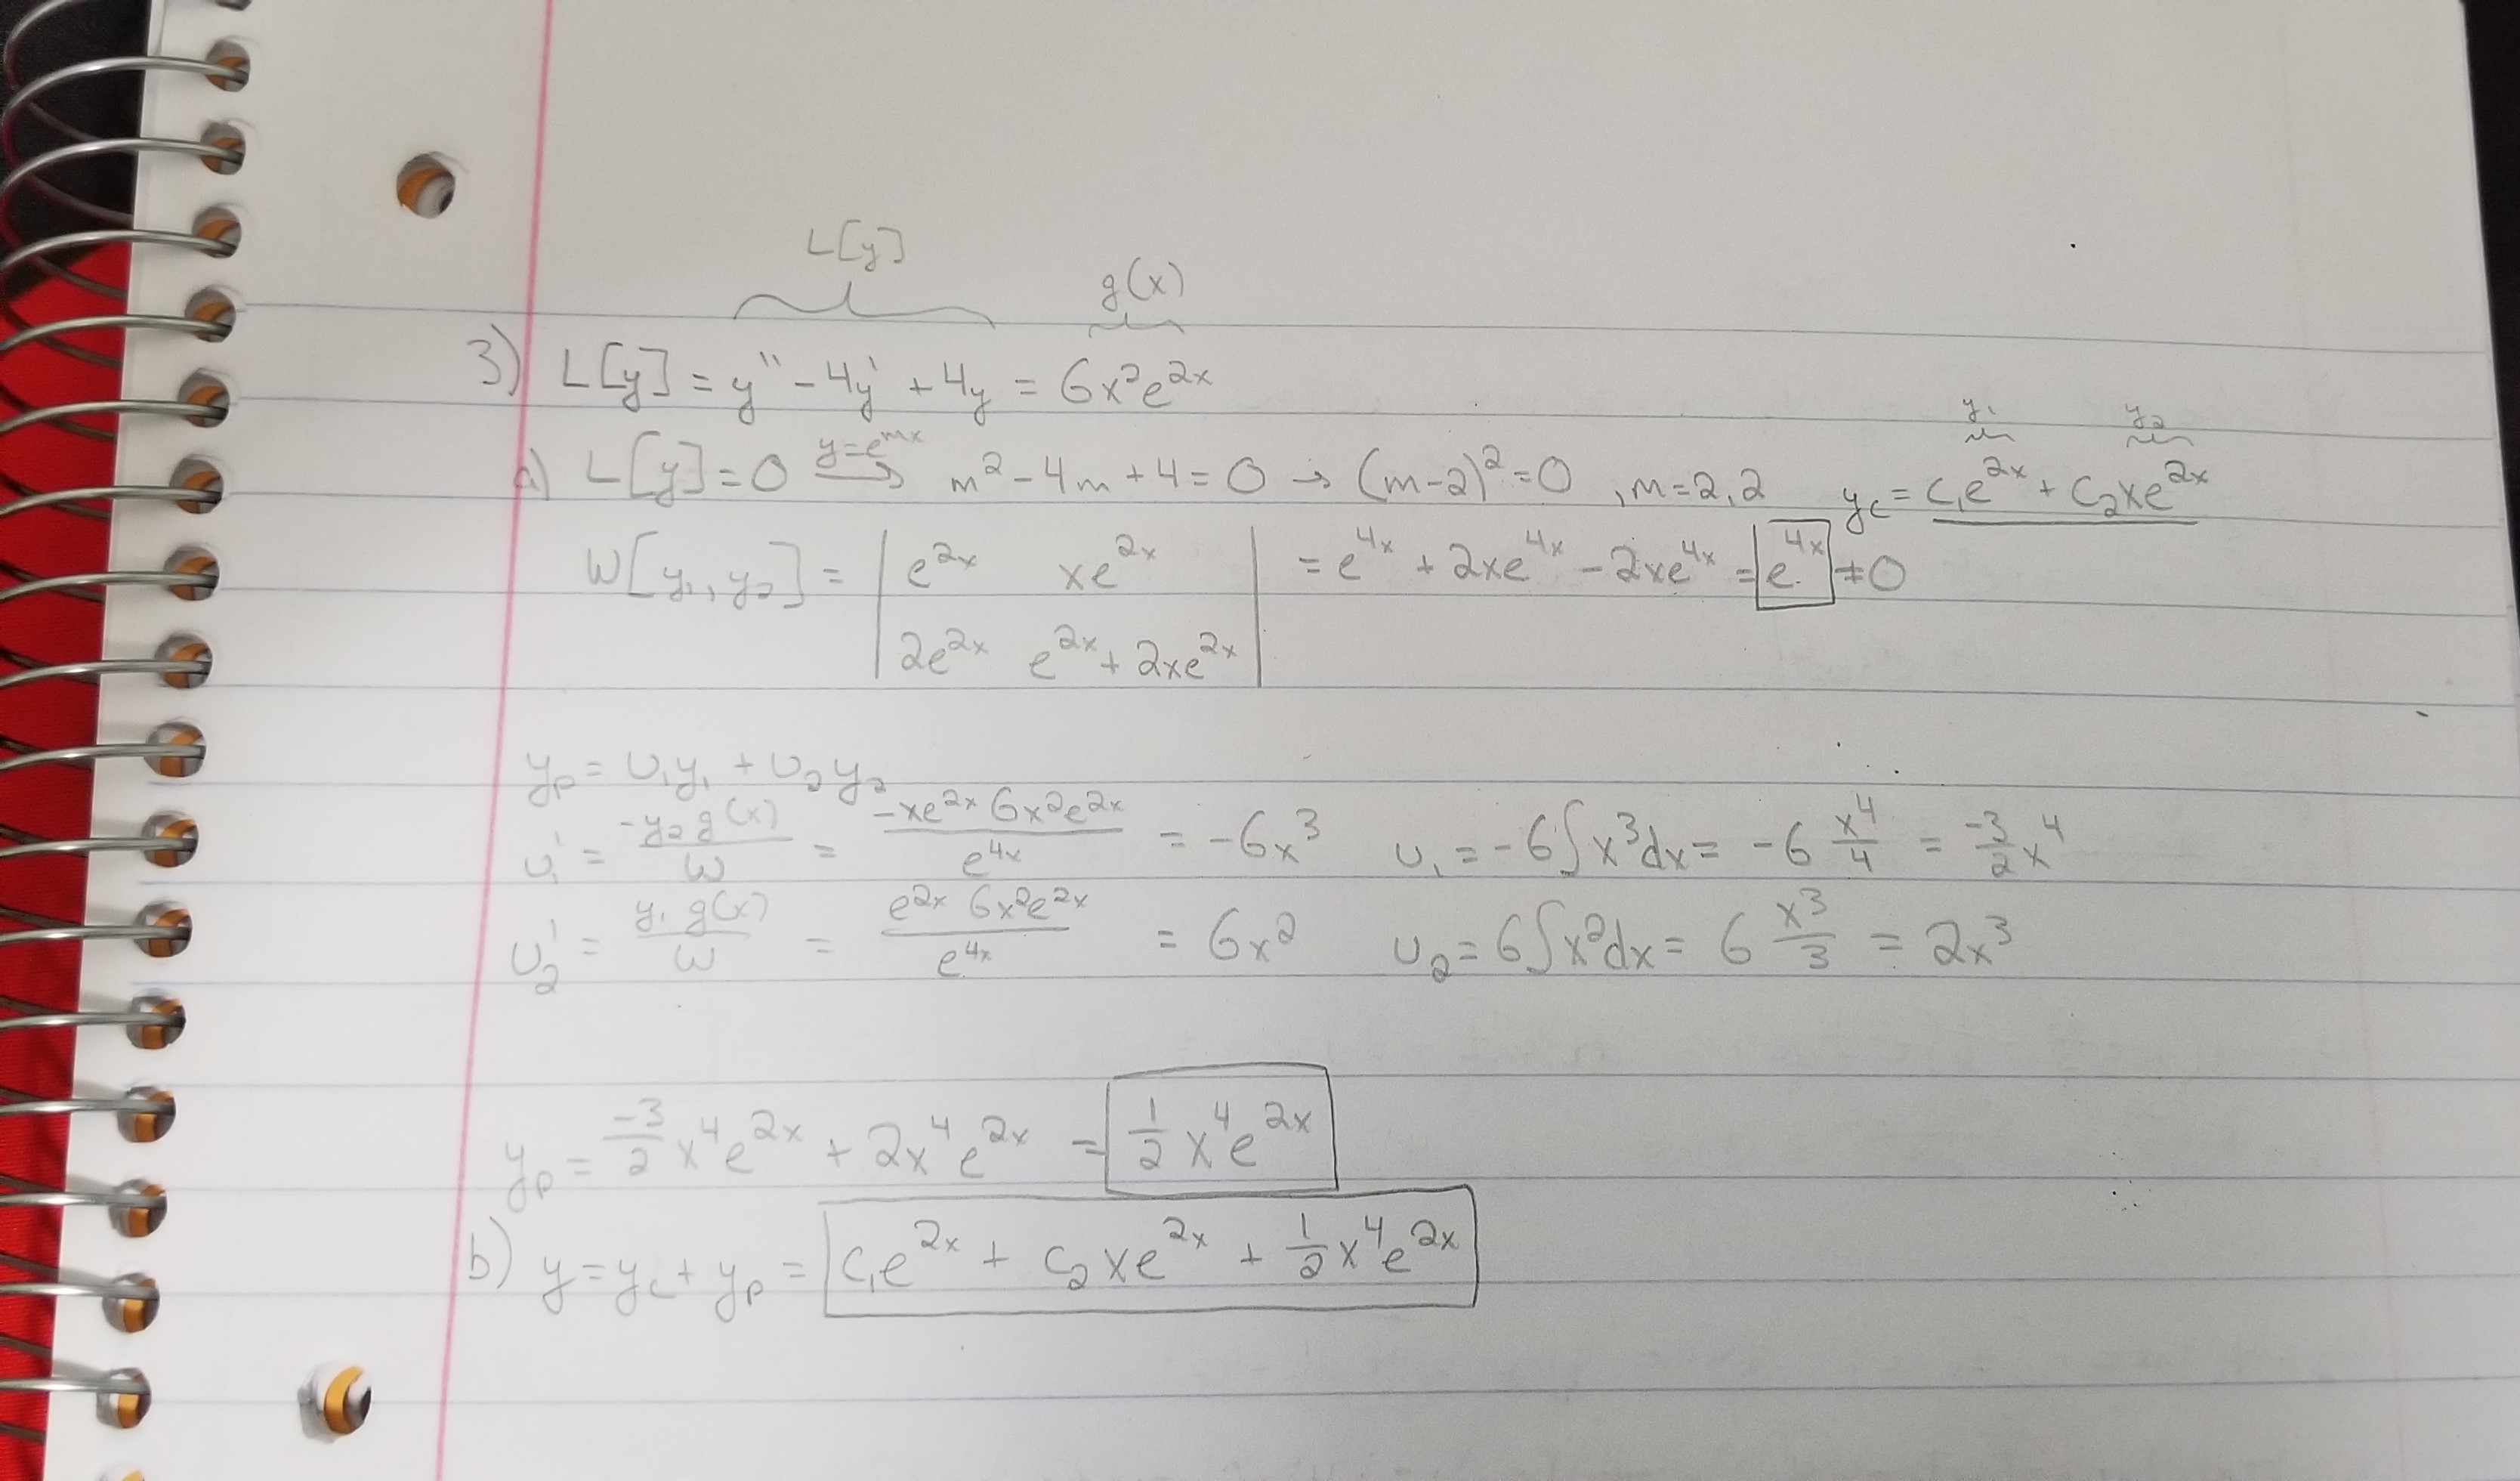 L[y]
g(x)
3) L[y] = y'' - 4y' + 4y = 6x²e^{2x}
y₁ y₂
a) L[y] = 0 \xrightarrow{y=e^{mx}} m² - 4m + 4 = 0 → (m-2)² = 0 , m = 2, 2 y_c = c₁e^{2x} + c₂xe^{2x}
W[y₁, y₂] = | e^{2x} xe^{2x} | = e^{4x} + 2xe^{4x} - 2xe^{4x} = e^{4x} ≠ 0
| 2e^{2x} e^{2x} + 2xe^{2x} |
y_p = u₁y₁ + u₂y₂
u₁' = \frac{-y₂ g(x)}{W} = \frac{-xe^{2x} 6x²e^{2x}}{e^{4x}} = -6x³ u₁ = -6∫x³dx = -6 \frac{x⁴}{4} = \frac{-3}{2}x⁴
u₂' = \frac{y₁ g(x)}{W} = \frac{e^{2x} 6x²e^{2x}}{e^{4x}} = 6x² u₂ = 6∫x²dx = 6 \frac{x³}{3} = 2x³
y_p = \frac{-3}{2}x⁴e^{2x} + 2x⁴e^{2x} = \frac{1}{2}x⁴e^{2x}
b) y = y_c + y_p = c₁e^{2x} + c₂xe^{2x} + \frac{1}{2}x⁴e^{2x}